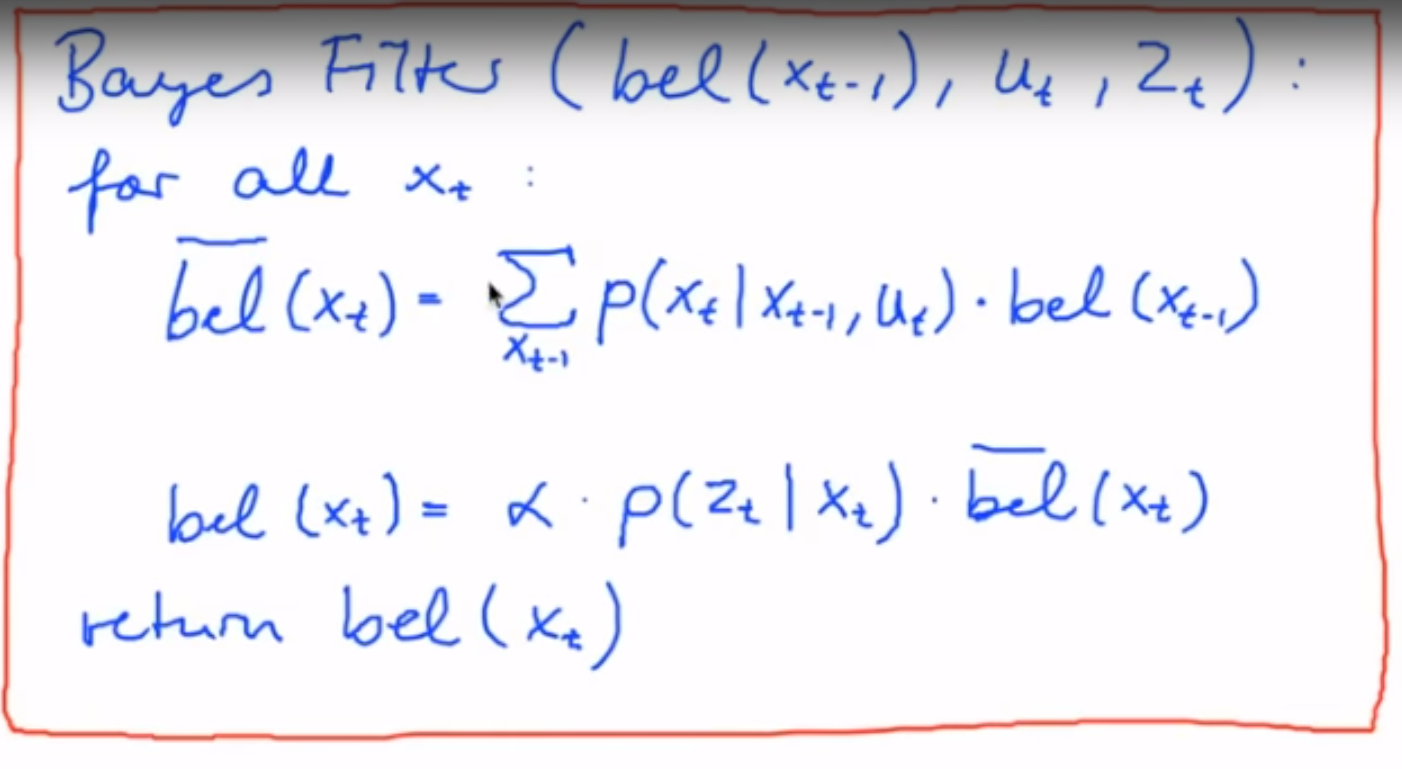 Bayes Filter (bel(x_{t-1}), u_t, z_t):
for all x_t:
\overline{bel}(x_t) = \sum_{x_{t-1}} p(x_t | x_{t-1}, u_t) · bel(x_{t-1})
bel(x_t) = α · p(z_t | x_t) · \overline{bel}(x_t)
return bel(x_t)